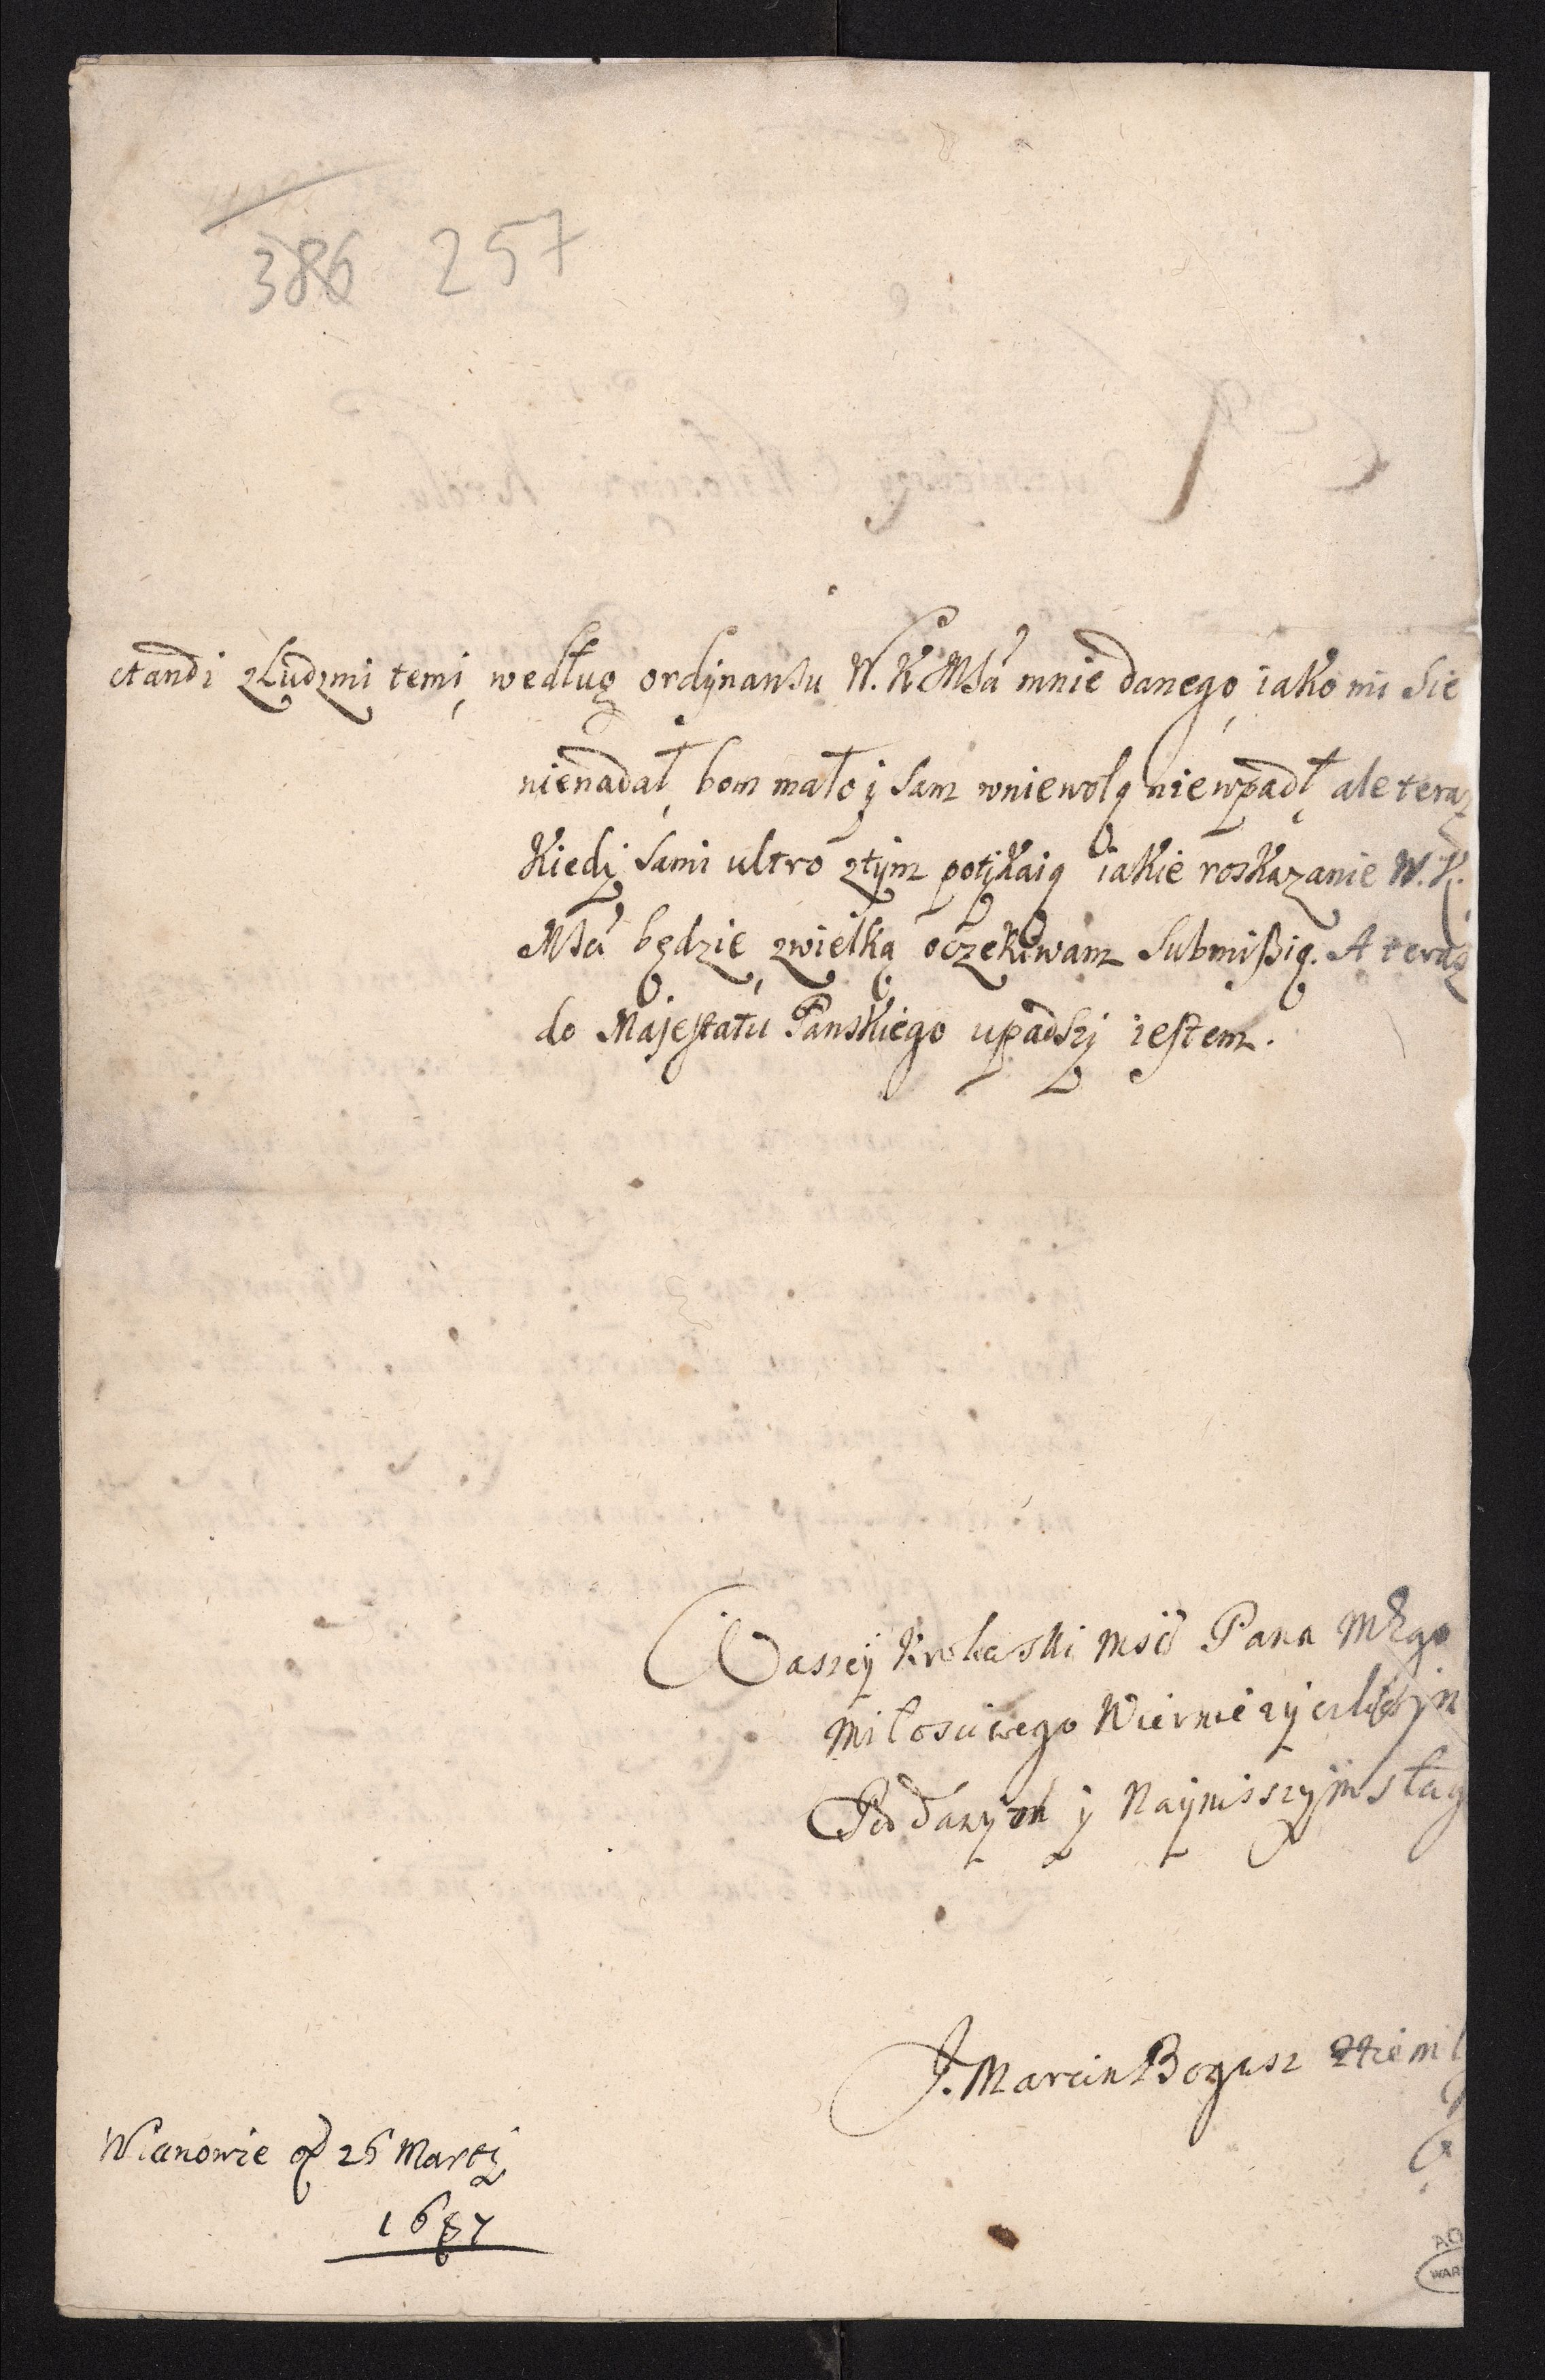 386 257
ctandi zLudzmi temi, według ordynansu W. K Msći mnie danego, iako mi sie
nienadał, bom mało y sam wniewolą niewpadł, ale teraz
Kiedy sami ultro ztym potykaią iakie roskazanie W. K.
Mści będzie, zwielką oczekiwam submißią. A teraz
do Majestatu Panskiego upadszy iestem.
Waszey Krolewski Mści Pana Mego
Miłosciwego Wiernie zyczliwym
Poddanym y Nayniszszym sług
J. Marcin Bogusz
WIanowie d 26 Martij
1687